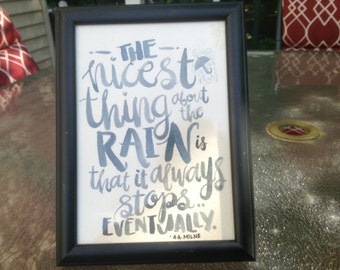 - THE -
nicest
thing about the
RAIN is
that it always
stops..
EVENTUALLY.
- A.A. MILNE